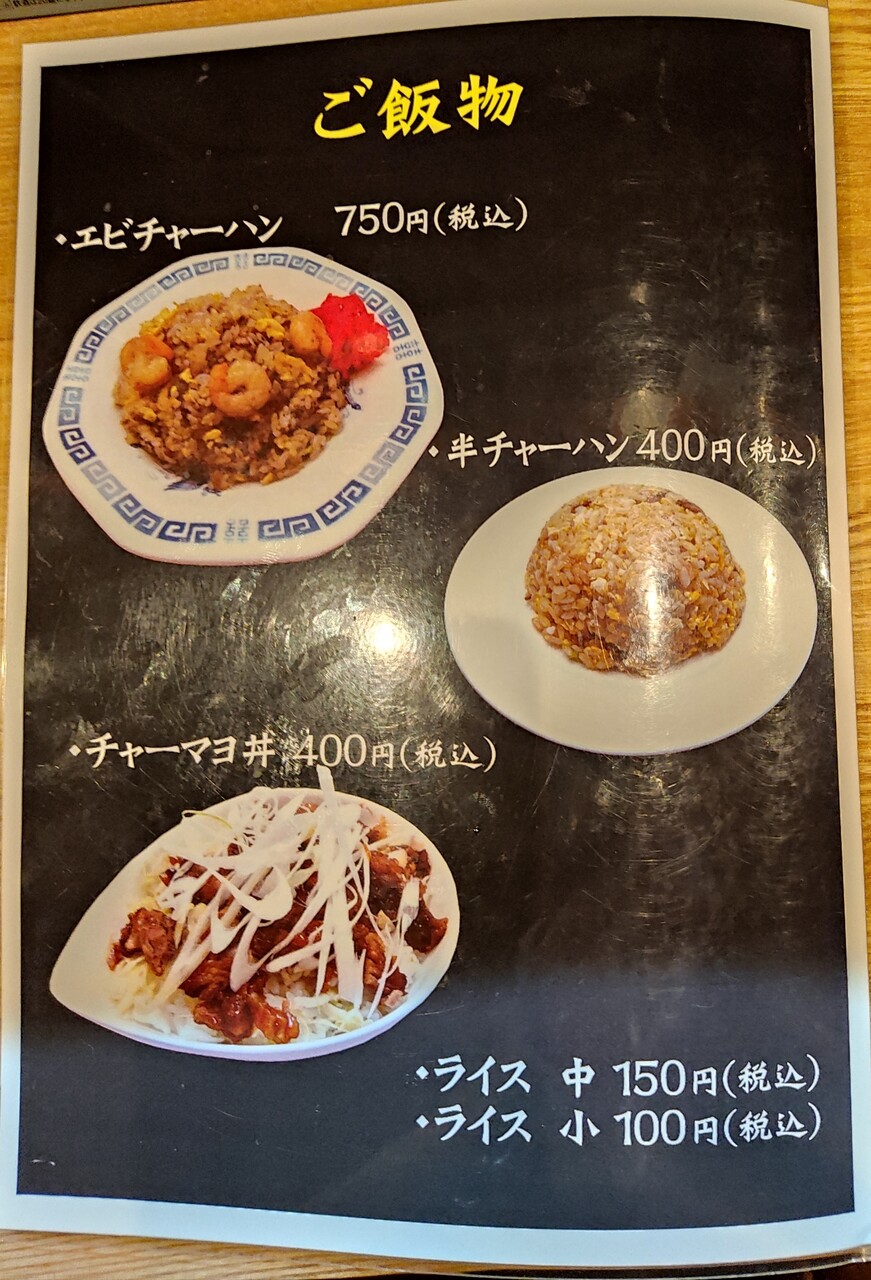 ご飯物
・エビチャーハン 750円(税込)
・半チャーハン 400円(税込)
・チャーマヨ丼 400円(税込)
・ライス 中 150円(税込)
・ライス 小 100円(税込)